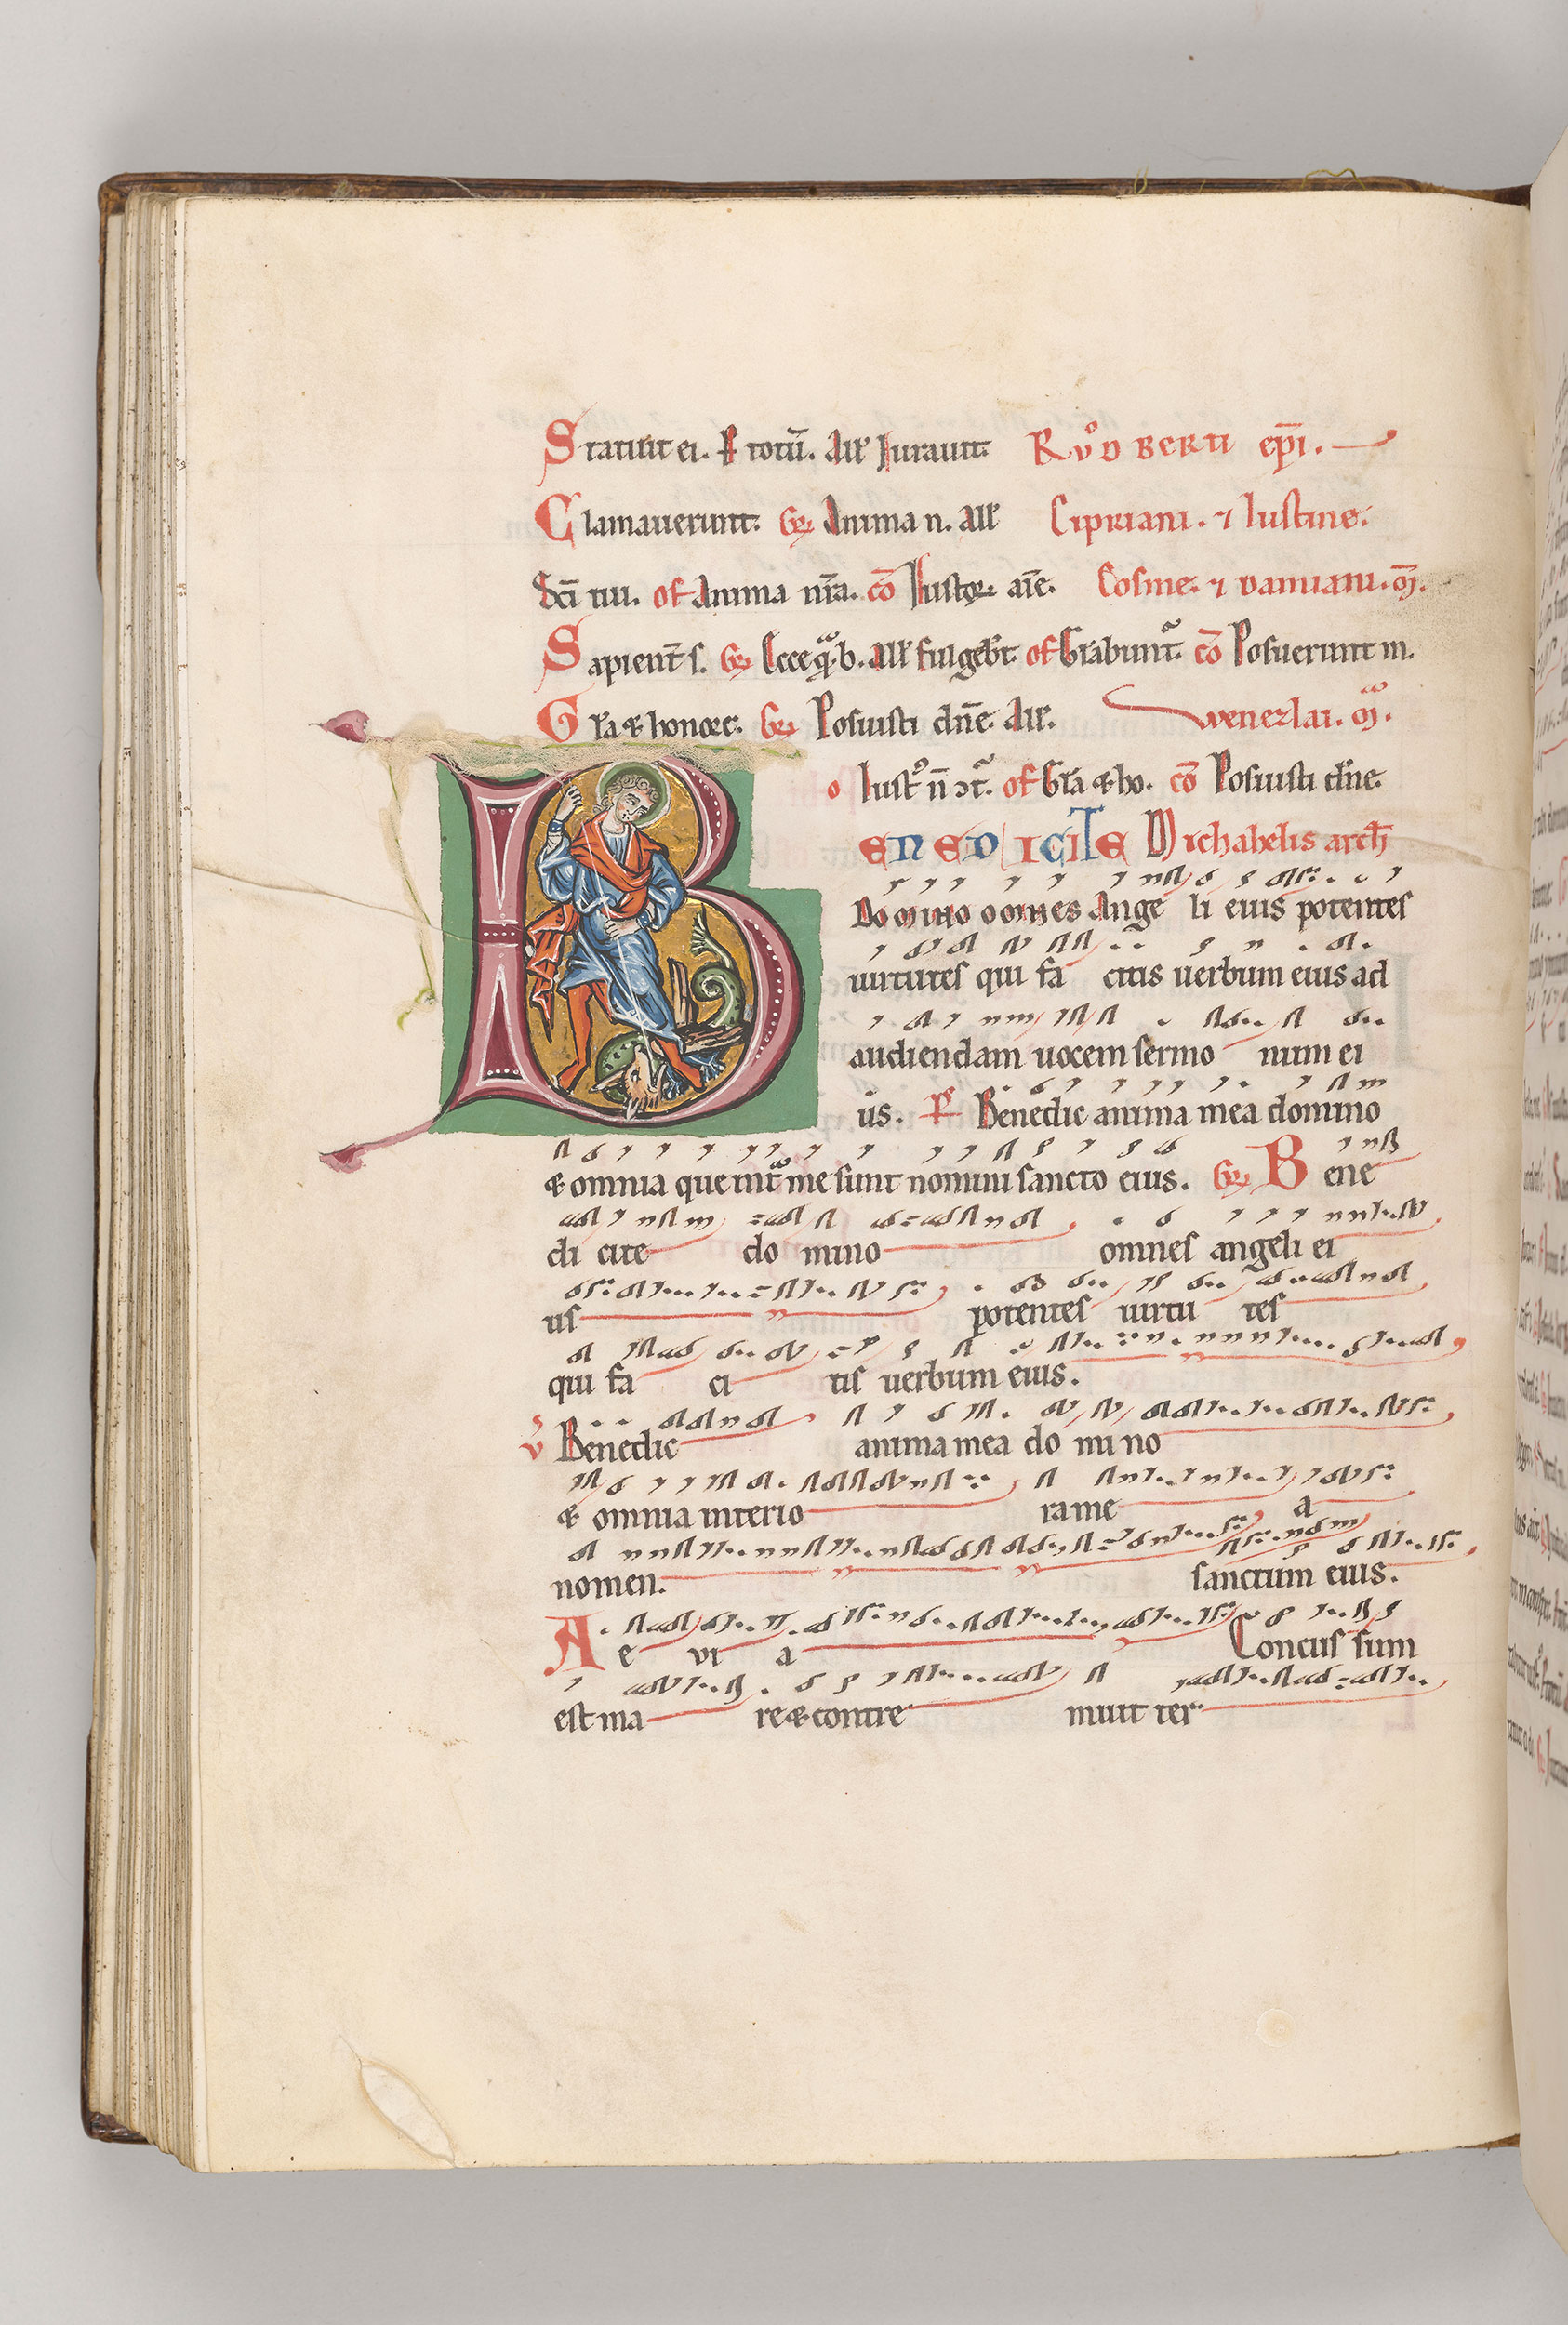 Statuit ei. P totū. All Iurauit. Růdberti ep̄i.
Clamauerunt. Gr Anima n. All Cipriani. ⁊ Iustine.
Sc̄i tui. of Anima nr̄a. cō Iustor. aīe. Cosme. ⁊ damiani. m̄.
Sapient̄ s. Gr Ecce q̄. b. All fulgebt. of Glabunt. cō Posuerunt m.
Glā & honore. Gr Posuisti dn̄e. All. Wenezlai. m.
o Iust n̄ ↄt. of Glā & ho. cō Posuisti dn̄e.
BENEDICITE Michahelis arch
Domino omnes Ange li eius potentes
uirtutes qui fa citis uerbum eius ad
audiendam uocem sermo num ei
us. Ps Benedic anima mea domino
& omnia que int me sunt nomini sancto eius. Gr Bene
di cite do mino omnes angeli ei
us potentes uirtu tes
qui fa ci tis uerbum eius.
v Benedic anima mea do mi no
& omnia interio ra me a
nomen. sanctum eius.
A e vi a Concus sum
est ma re & contre muit ter